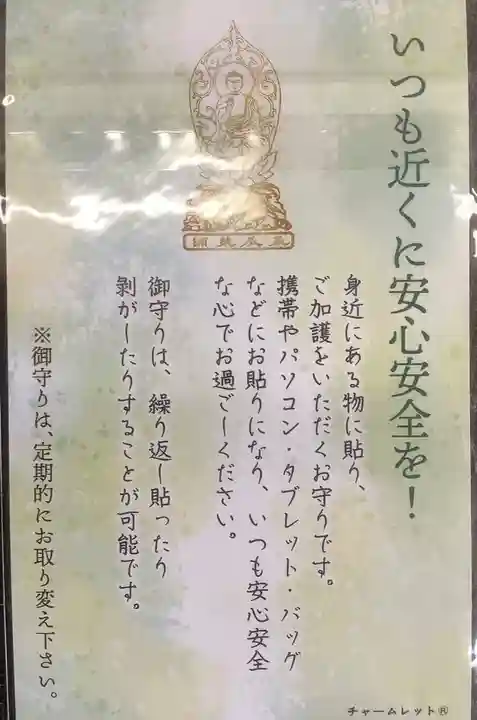 いつも近くに安心安全を！
身近にある物に貼り、
ご加護をいただくお守りです。
携帯やパソコン・タブレット・バッグ
などにお貼りになり、いつも安心安全
な心でお過ごしください。
御守りは、繰り返し貼ったり
剥がしたりすることが可能です。
※御守りは、定期的にお取り変え下さい。
チャームレット®